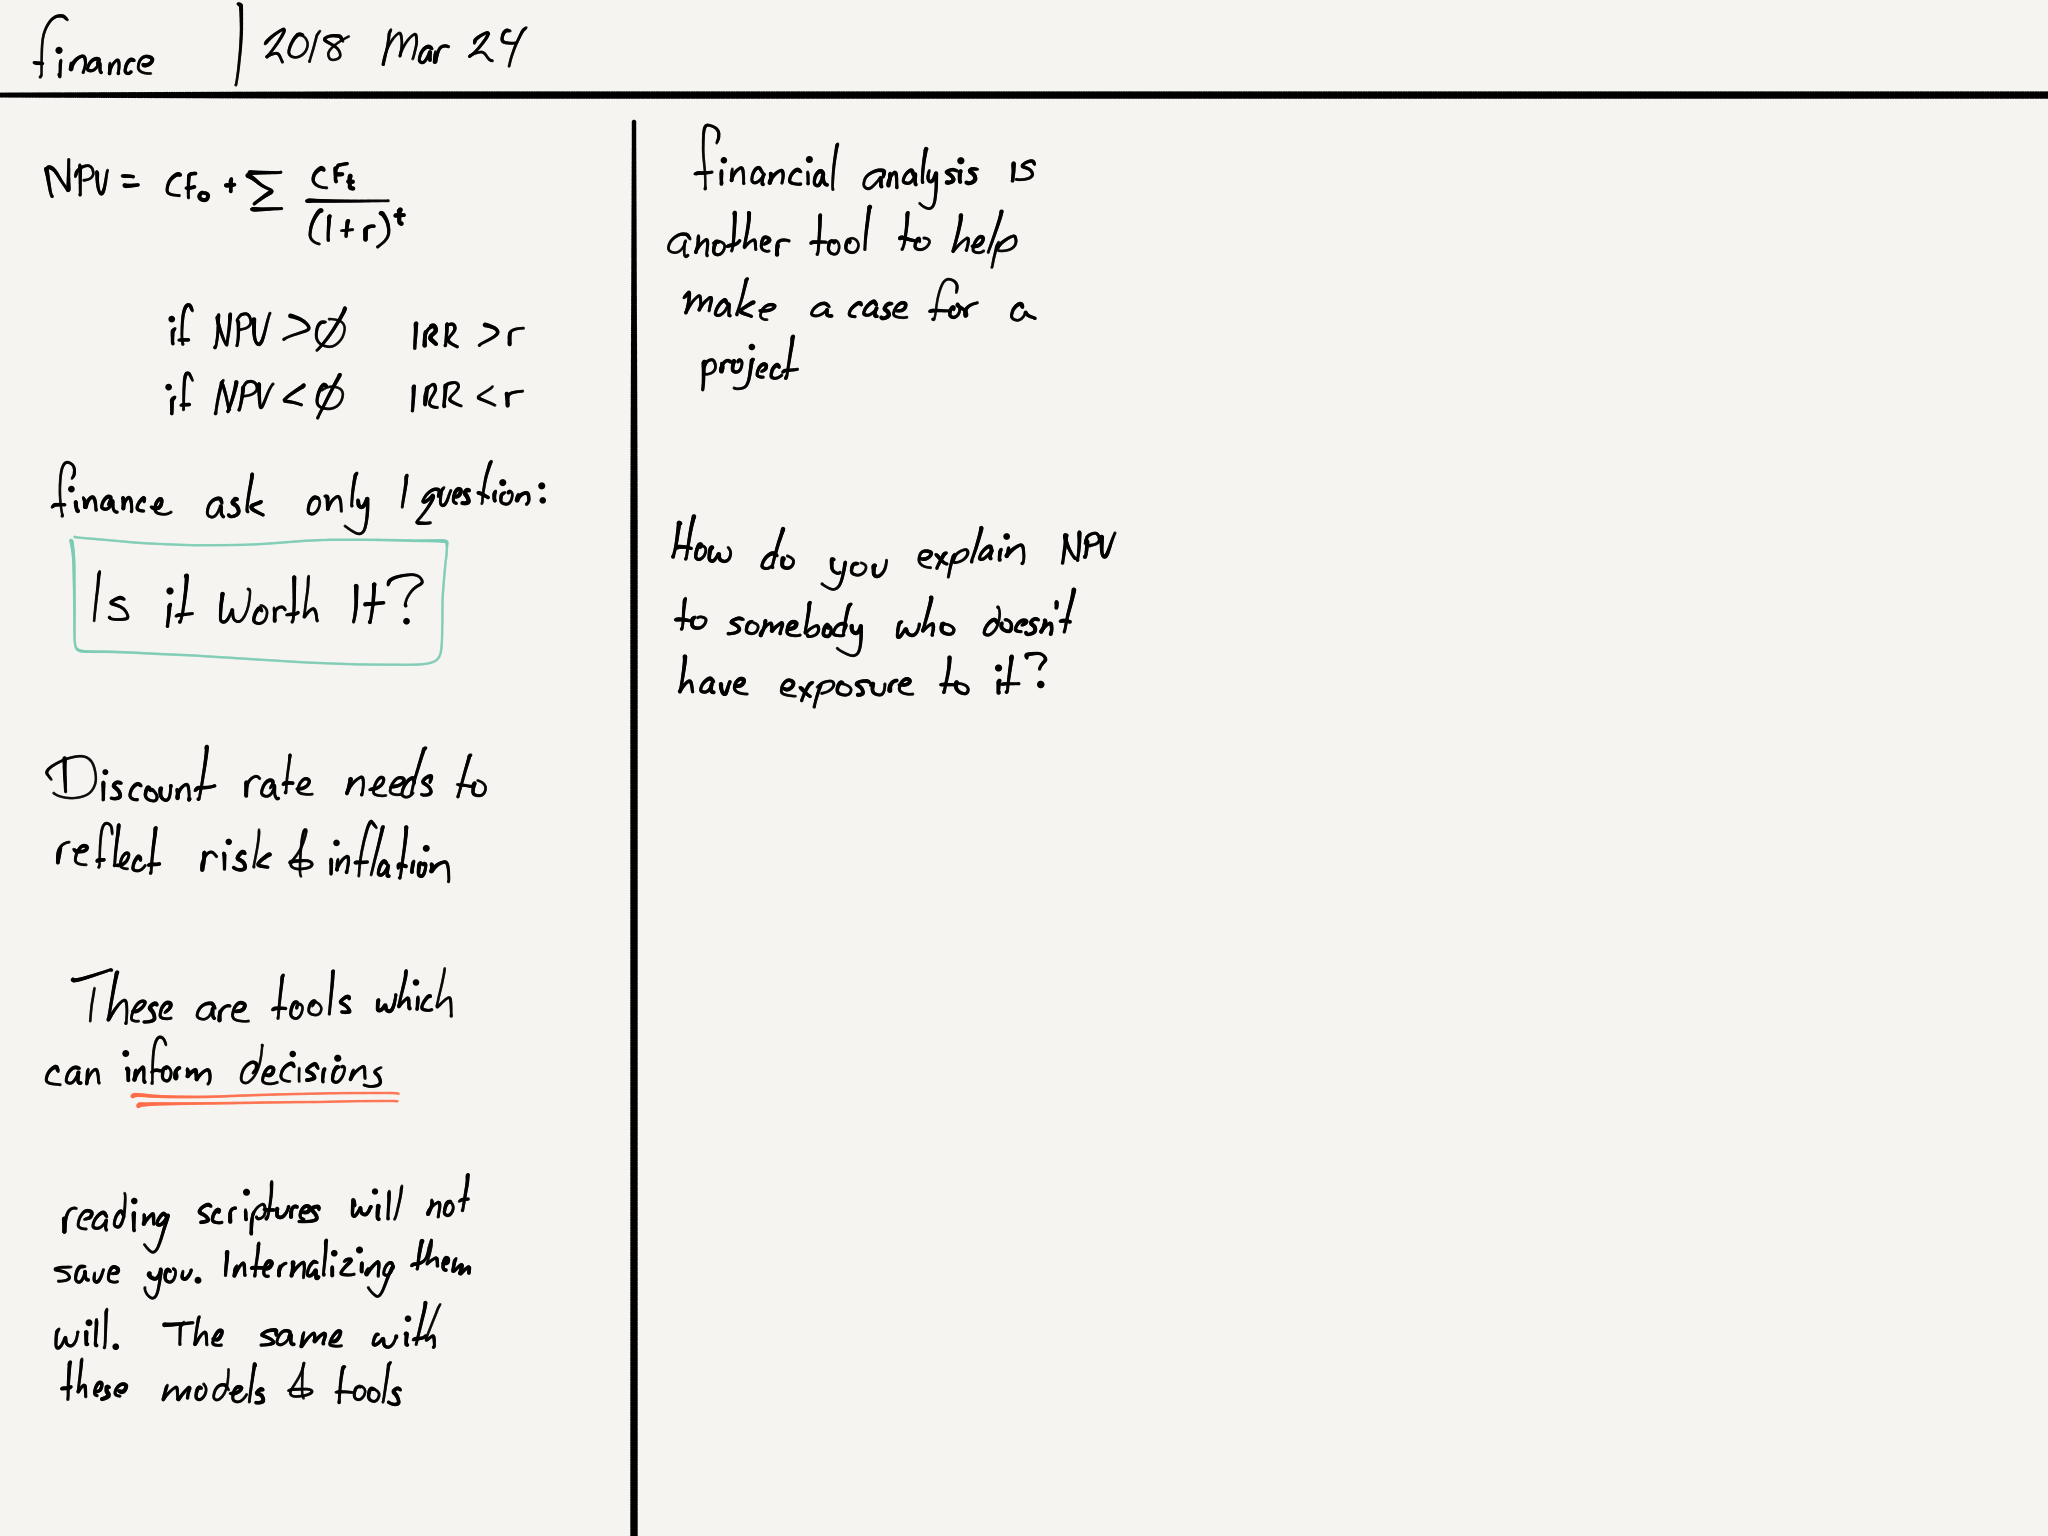 finance | 2018 Mar 24
NPV = CF₀ + Σ CFₜ / (1+r)ᵗ
if NPV > Ø IRR > r
if NPV < Ø IRR < r
finance ask only 1 question:
Is it Worth It?
Discount rate needs to
reflect risk & inflation
These are tools which
can inform decisions
reading scriptures will not
save you. Internalizing them
will. The same with
these models & tools
financial analysis is
another tool to help
make a case for a
project
How do you explain NPV
to somebody who doesn't
have exposure to it?